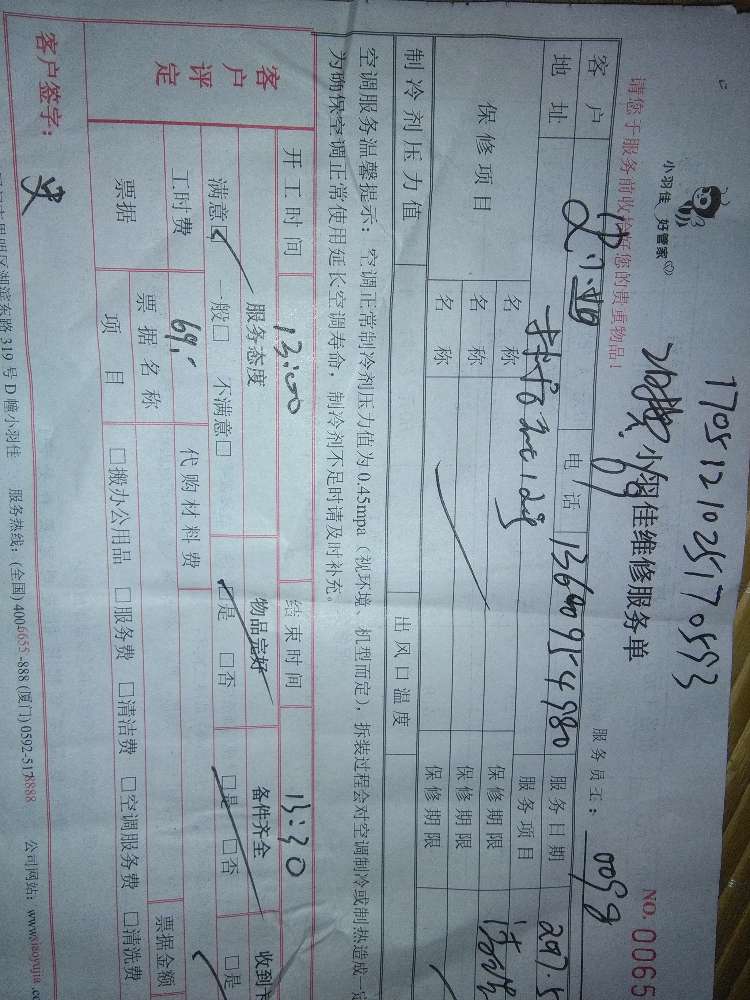 170512102517053
小羽佳 好管家
小羽佳维修服务单
NO. 0065
请您于服务前收检好您的贵重物品！
服务员工：
客户
电话
13600954980
服务日期
地址
服务项目
保修项目
名称
保修期限
名称
保修期限
名称
保修期限
制冷剂压力值
出风口温度
空调服务温馨提示：空调正常制冷剂压力值为0.45mpa（视环境、机型而定），拆装过程会对空调制冷或制热造成一定
为确保空调正常使用延长空调寿命，制冷剂不足时请及时补充。
客户评定
开工时间
13:00
结束时间
13:30
服务态度
物品完好
备件齐全
收到
满意□ 一般□ 不满意□
□是 □否
□是 □否
□是
工时费
69.-
代购材料费
票据
票据名称
票据金额
项目
□搬办公用品 □服务费 □清洁费 □空调服务费 □清洗费
客户签字：
史
湖滨东路319号D幢小羽佳 服务热线：(全国) 4006655-888 (厦门) 0592-5178888 公司网站：www.xiaoyujia.c